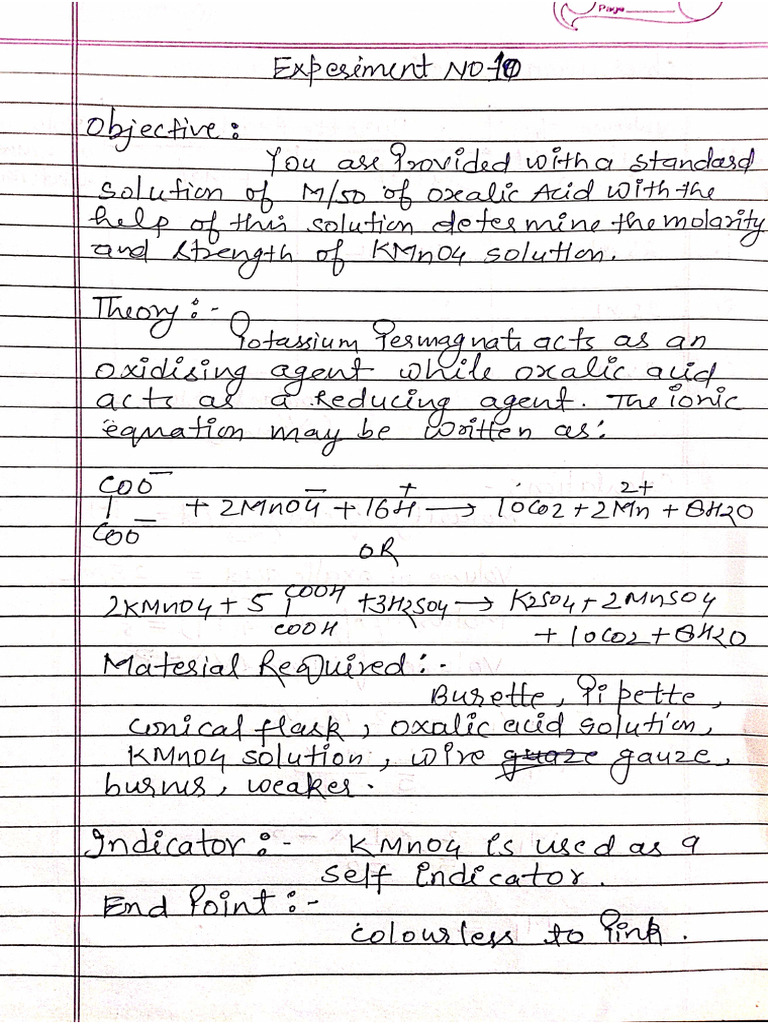 Page
Experiment NO-10
Objective:
You are Provided with a standard
solution of M/50 of oxalic Acid with the
help of this solution determine the molarity
and strength of KMnO4 solution.
Theory:-
Potassium Permagnati acts as an
oxidising agent while oxalic acid
acts as a Reducing agent. The ionic
equation may be written as:
COO⁻
| + 2MnO4⁻ + 16H⁺ → 10CO2 + 2Mn²⁺ + 8H2O
COO⁻
OR
2KMnO4 + 5 COOH | COOH + 3H2SO4 → K2SO4 + 2MnSO4
+ 10CO2 + 8H2O
Material Required:-
Burette, Pipette,
conical flask, oxalic acid solution,
KMnO4 solution, wire guaze gauze,
burnus, weaker.
Indicator:- KMnO4 is used as a
self indicator.
End Point:-
colourless to Pink.